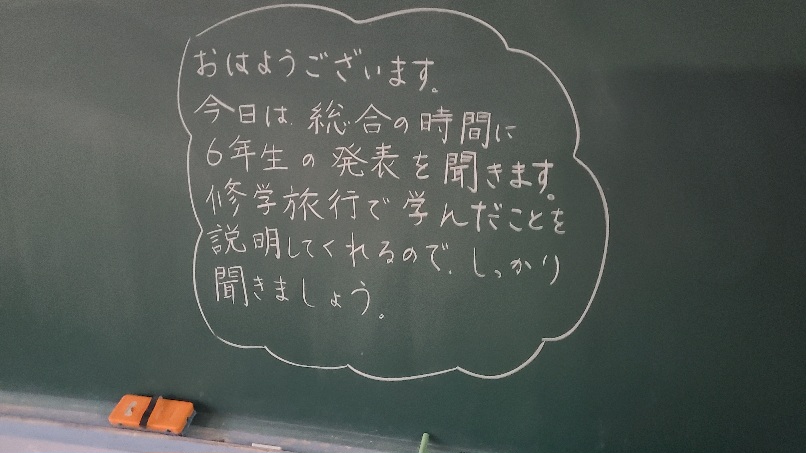 おはようございます。
今日は、総合の時間に
6年生の発表を聞きます。
修学旅行で学んだことを
説明してくれるので、しっかり
聞きましょう。